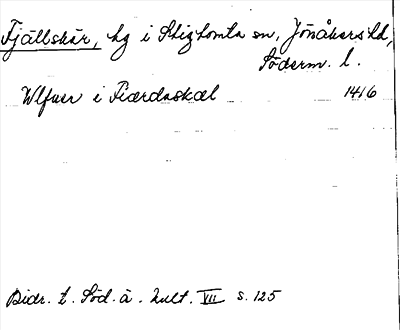 Fjällskär, hg i Stigtomta sn, Jönåkers hd,
Söderm. l.
Wlfuer i Fiærdaskæl 1416
Bidr. t. Söd. ä. kult. VII s. 125